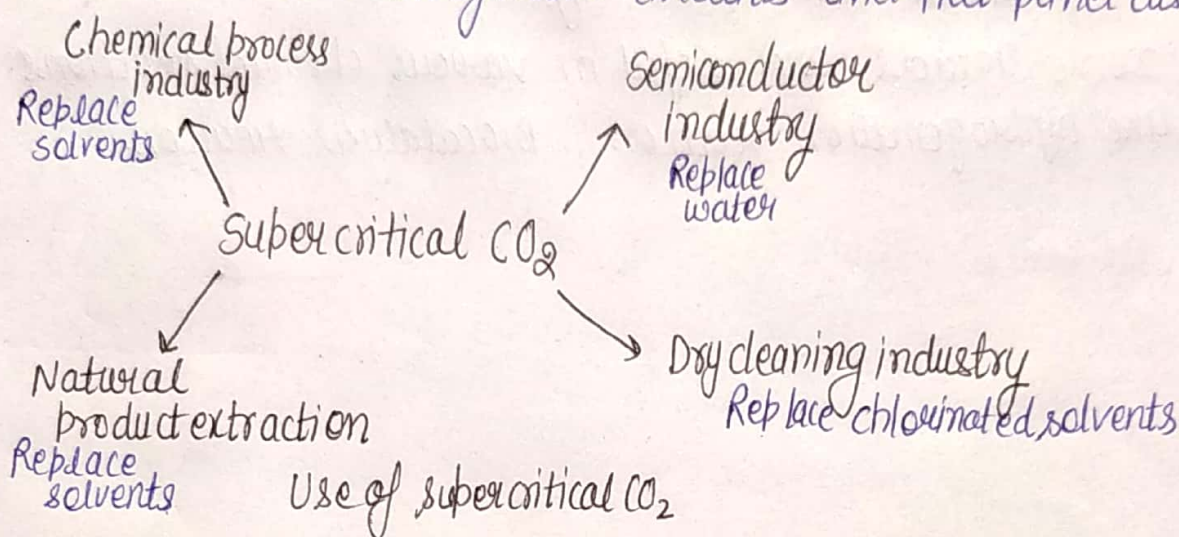 and
Chemical process
industry
Replace
solvents
Semiconductor
industry
Replace
water
Supercritical CO₂
Natural
product extraction
Replace
solvents
Dry cleaning industry
Replace chlorinated solvents
Use of supercritical CO₂